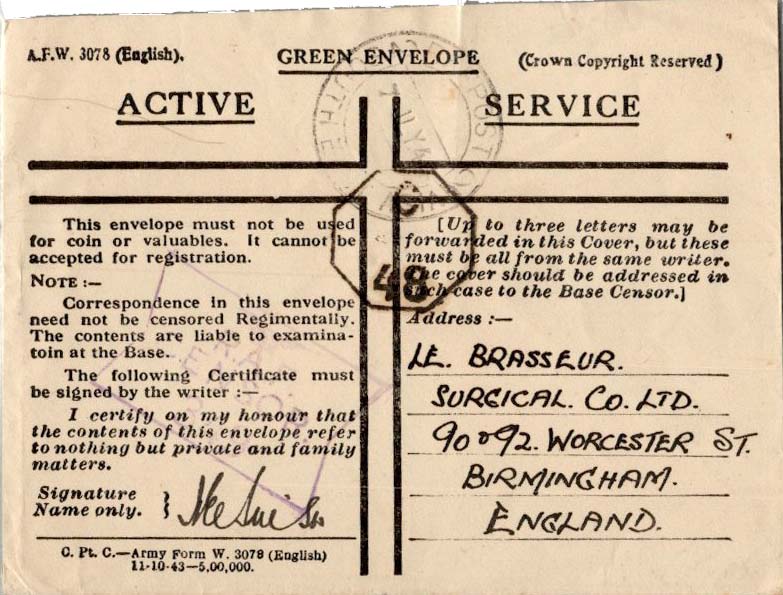 A.F.W. 3078 (English).
GREEN ENVELOPE
(Crown Copyright Reserved)
ACTIVE SERVICE
This envelope must not be used
for coin or valuables. It cannot be
accepted for registration.
NOTE :—
Correspondence in this envelope
need not be censored Regimentally.
The contents are liable to examina-
toin at the Base.
The following Certificate must
be signed by the writer :—
I certify on my honour that
the contents of this envelope refer
to nothing but private and family
matters.
Signature
Name only. }
C. Pt. C.—Army Form W. 3078 (English)
11-10-43—5,00,000.
[Up to three letters may be
forwarded in this Cover, but these
must be all from the same writer.
The cover should be addressed in
such case to the Base Censor.]
Address :—
LE. BRASSEUR.
SURGICAL. CO. LTD.
90 & 92. WORCESTER ST.
BIRMINGHAM.
ENGLAND.
C
48